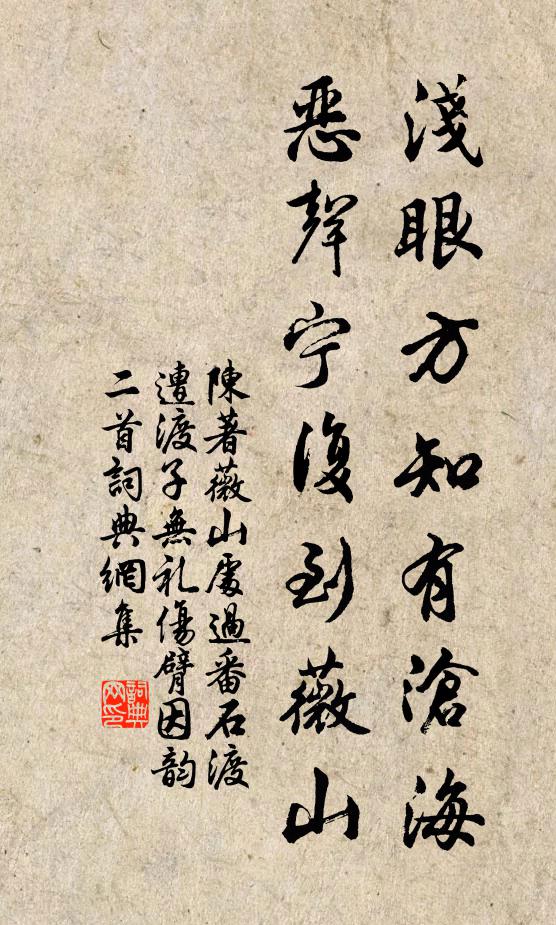 淺眼方知有滄海
惡聲宁復到薇山
陳著薇山屢過番石渡
遭渡子無礼傷臂因韵
二首詞典網集
詞典网印